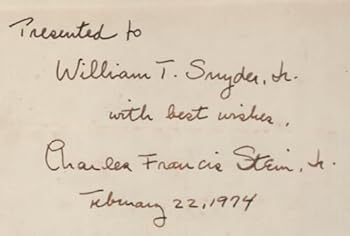 Presented to
William T. Snyder, Jr.
with best wishes,
Charles Francis Stein, Jr.
February 22, 1974